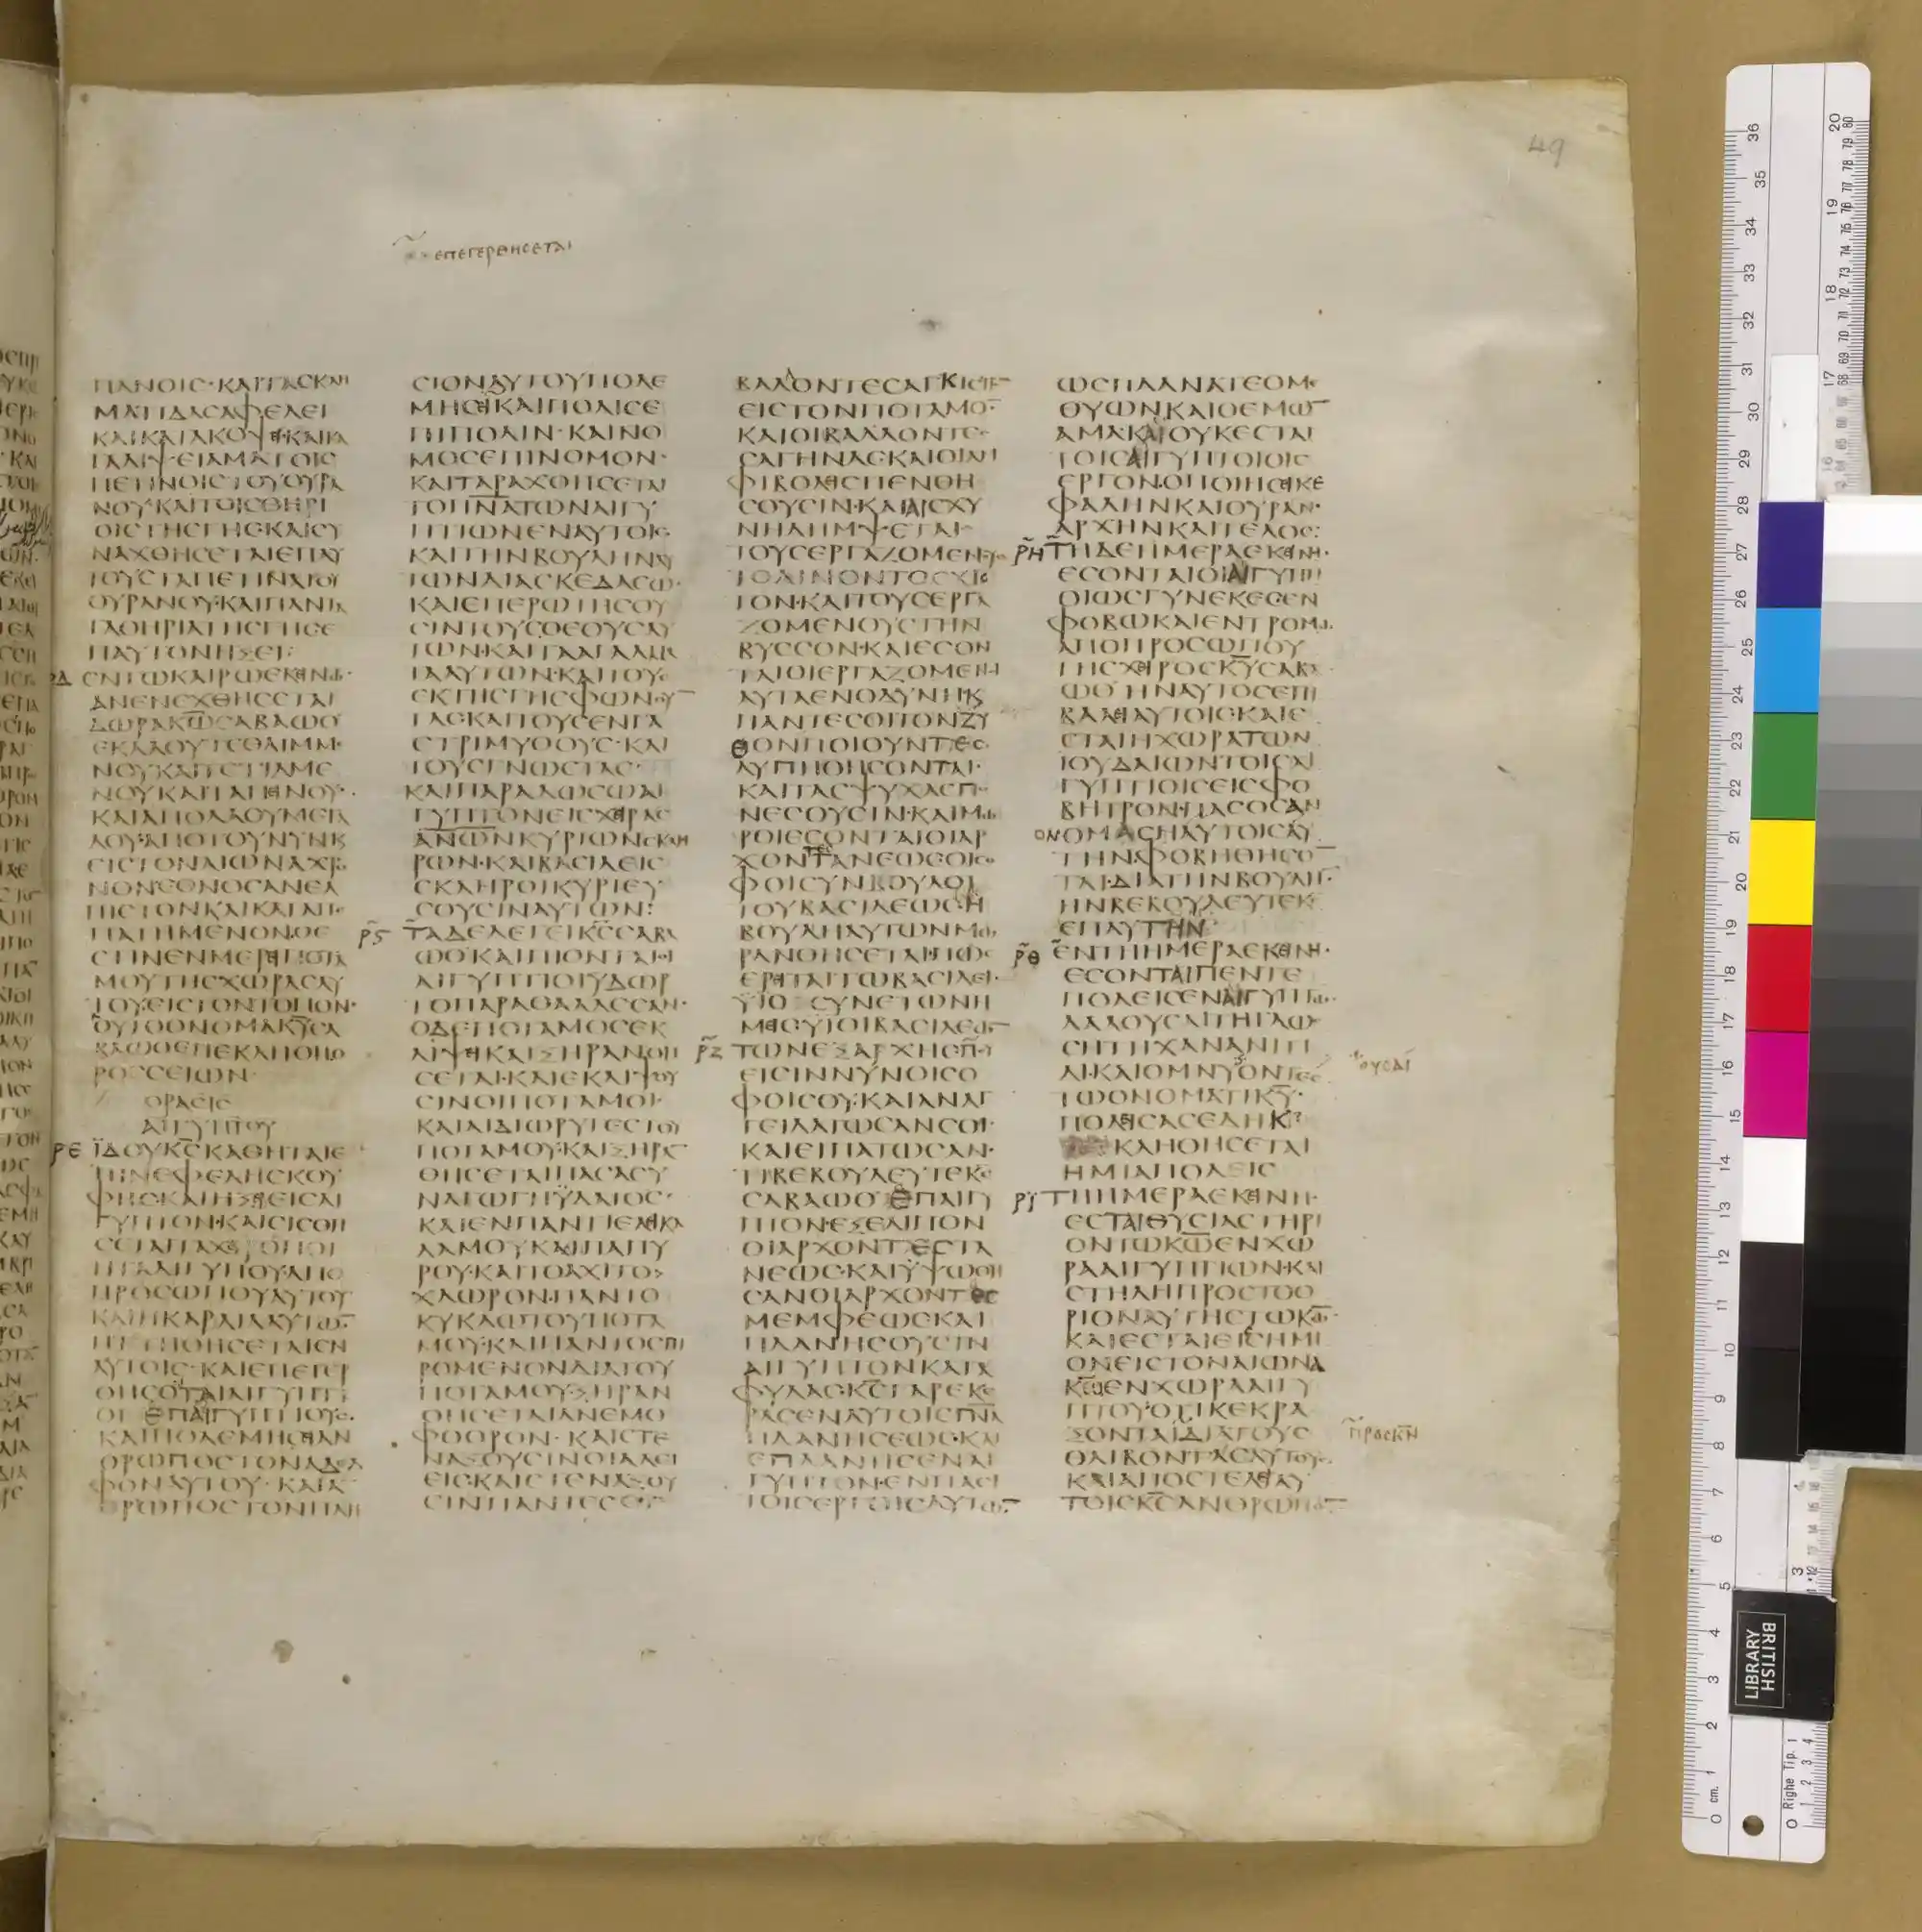 49
επεγερθησεται
ΠΑΝΟΙΣ·ΚΑΙΤΑΣΚΛΗ
ΜΑΤΙΔΑΣΑΦΕΛΕΙ
ΚΑΙΚΑΤΑΚΟΨΕΙ·ΚΑΙΚΑ
ΤΑΛΙΨΕΙΑΜΑΤΟΙΣ
ΠΕΤΙΝΟΙΣΤΟΥΟΥΡΑ
ΝΟΥΚΑΙΤΟΙΣΘΗΡΙ
ΟΙΣΤΗΣΓΗΣ·ΚΑΙΣΥ
ΝΑΧΘΗΣΕΤΑΙΕΠΑΥ
ΤΟΥΣΤΑΠΕΤΙΝΑΤΟΥ
ΟΥΡΑΝΟΥ·ΚΑΙΠΑΝΤΑ
ΤΑΘΗΡΙΑΤΗΣΓΗΣΕ
ΠΑΥΤΟΝΗΞΕΙ:
ΡΔ ΕΝΤΩΚΑΙΡΩΕΚΕΙΝΩ·
ΑΝΕΝΕΧΘΗΣΕΤΑΙ
ΔΩΡΑΚΩΣΑΒΑΩΘ
ΕΚΛΑΟΥΤΕΘΛΙΜΜΕ
ΝΟΥΚΑΙΤΕΤΙΛΜΕ
ΝΟΥΚΑΙΤΑΠΕΙΝΟΥ·
ΚΑΙΑΠΟΛΑΟΥΜΕΓΑ
ΛΟΥ·ΑΠΟΤΟΥΝΥΝΚ
ΕΙΣΤΟΝΑΙΩΝΑΧΡΟ
ΝΟΝΕΘΝΟΣΑΝΕΛ
ΠΙΣΤΟΝΚΑΙΚΑΤΑΠΕ
ΠΑΤΗΜΕΝΟΝ·ΟΕ
ΣΤΙΝΕΝΜΕΡΕΙΠΟΤΑ
ΜΟΥΤΗΣΧΩΡΑΣΑΥ
ΤΟΥ·ΕΙΣΤΟΝΤΟΠΟΝ·
ΟΥΤΟΟΝΟΜΑΚΥΣΑ
ΒΑΩΘΕΠΕΚΛΗΘΗΟ
ΡΟΣΣΕΙΩΝ·
ΟΡΑΣΙΣ
ΑΙΓΥΠΤΟΥ
ΡΕ ΪΔΟΥΚΣΚΑΘΗΤΑΙΕ
ΠΙΝΕΦΕΛΗΣΚΟΥ
ΦΗΣ·ΚΑΙΗΞΕΙΕΙΣΑΙ
ΓΥΠΤΟΝ·ΚΑΙΣΙΣΘΗ
ΣΕΤΑΙΤΑΧΕΙΡΟΠΟΙ
ΗΤΑΑΙΓΥΠΤΟΥ·ΑΠΟ
ΠΡΟΣΩΠΟΥΑΥΤΟΥ
ΚΑΙΗΚΑΡΔΙΑΑΥΤΩΝ
ΗΤΤΗΘΗΣΕΤΑΙΕΝ
ΑΥΤΟΙΣ·ΚΑΙΕΠΕΓΕΡ
ΘΗΣΟΤΑΙΑΙΓΥΠΤΙ
ΟΙ ΕΠΑΙΓΥΠΤΙΟΥΣ·
ΚΑΙΠΟΛΕΜΗΣΕΙΑΝ
ΘΡΩΠΟΣΤΟΝΑΔΕΛ
ΦΟΝΑΥΤΟΥ·ΚΑΙΑ
ΘΡΩΠΟΣΤΟΝΠΛΗ
ΣΙΟΝΑΥΤΟΥΠΟΛΕ
ΜΗΣΕΙΚΑΙΠΟΛΙΣΕ
ΠΙΠΟΛΙΝ·ΚΑΙΝΟ
ΜΟΣΕΠΙΝΟΜΟΝ·
ΚΑΙΤΑΡΑΧΘΗΣΕΤΑΙ
ΤΟΠΝΑΤΩΝΑΙΓΥ
ΠΤΙΩΝΕΝΑΥΤΟΙΣ·
ΚΑΙΤΗΝΒΟΥΛΗΝΑΥ
ΤΩΝΔΙΑΣΚΕΔΑΣΩ·
ΚΑΙΕΠΕΡΩΤΗΣΟΥ
ΣΙΝΤΟΥΣΘΕΟΥΣΑΥ
ΤΩΝ·ΚΑΙΤΑΑΓΑΛΜΑ
ΤΑΑΥΤΩΝ·ΚΑΙΤΟΥΣ
ΕΚΤΗΣΓΗΣΦΩΝΟΥ
ΤΑΣ·ΚΑΙΤΟΥΣΕΝΓΑ
ΣΤΡΙΜΥΘΟΥΣ·ΚΑΙ
ΤΟΥΣΓΝΩΣΤΑΣ·
ΚΑΙΠΑΡΑΔΩΣΩΑΙ
ΓΥΠΤΟΝΕΙΣΧΕΙΡΑΣ
ΑΝΩΝΚΥΡΙΩΝΣΚΛΗ
ΡΩΝ·ΚΑΙΒΑΣΙΛΕΙΣ
ΣΚΛΗΡΟΙΚΥΡΙΕΥ
ΣΟΥΣΙΝΑΥΤΩΝ:
ΡϚ ΤΑΔΕΛΕΓΕΙΚΣΣΑΒΑ
ΩΘ·ΚΑΙΠΙΟΝΤΑΙΟΙ
ΑΙΓΥΠΤΙΟΙΫΔΩΡ
ΤΟΠΑΡΑΘΑΛΑΣΣΑΝ·
ΟΔΕΠΟΤΑΜΟΣΕΚ
ΛΙΨΕΙΚΑΙΞΗΡΑΝΘΗ
ΣΕΤΑΙ·ΚΑΙΕΚΛΙΨΟΥ
ΣΙΝΟΙΠΟΤΑΜΟΙ·
ΚΑΙΑΙΔΙΩΡΥΓΕΣΤΟΥ
ΠΟΤΑΜΟΥ·ΚΑΙΞΗΡΑΝ
ΘΗΣΕΤΑΙΠΑΣΑΣΥ
ΝΑΓΩΓΗΫΔΑΤΟΣ·
ΚΑΙΕΝΠΑΝΤΙΕΛΕΙΚΑ
ΛΑΜΟΥΚΑΙΠΑΠΥ
ΡΟΥ·ΚΑΙΤΟΑΧΙΤΟ
ΧΛΩΡΟΝ·ΠΑΝΤΟ
ΚΥΚΛΩΤΟΥΠΟΤΑ
ΜΟΥ·ΚΑΙΠΑΝΤΟΣΠΙ
ΡΟΜΕΝΟΝΔΙΑΤΟΥ
ΠΟΤΑΜΟΥ·ΞΗΡΑΝ
ΘΗΣΕΤΑΙΑΝΕΜΟ
ΦΘΟΡΟΝ·ΚΑΙΣΤΕ
ΝΑΞΟΥΣΙΝΟΙΑΛΕΙ
ΕΙΣ·ΚΑΙΣΤΕΝΑΞΟΥ
ΣΙΝΠΑΝΤΕΣΟΙ
ΒΑΛΛΟΝΤΕΣΑΓΚΙΣΤΡ
ΕΙΣΤΟΝΠΟΤΑΜΟ·
ΚΑΙΟΙΒΑΛΛΟΝΤΕΣ
ΣΑΓΗΝΑΣ·ΚΑΙΟΙΑΜ
ΦΙΒΟΛΕΙΣΠΕΝΘΗ
ΣΟΥΣΙΝ·ΚΑΙΑΙΣΧΥ
ΝΗΛΗΜΨΕΤΑΙ
ΤΟΥΣΕΡΓΑΖΟΜΕΝΟΥΣ
ΤΟΛΙΝΟΝΤΟΣΧΙΣ
ΤΟΝ·ΚΑΙΤΟΥΣΕΡΓΑ
ΖΟΜΕΝΟΥΣΤΗΝ
ΒΥΣΣΟΝ·ΚΑΙΕΣΟΝ
ΤΑΙΟΙΕΡΓΑΖΟΜΕΝΟΙ
ΑΥΤΑΕΝΟΔΥΝΗΚ
ΠΑΝΤΕΣΟΙΤΟΝΖΥ
ΘΟΝΠΟΙΟΥΝΤΕΣ
ΛΥΠΗΘΗΣΟΝΤΑΙ·
ΚΑΙΤΑΣΨΥΧΑΣΠΟ
ΝΕΣΟΥΣΙΝ·ΚΑΙΜΩ
ΡΟΙΕΣΟΝΤΑΙΟΙΑΡ
ΧΟΝΤΕΣΤΑΝΕΩΣΟΙΣΟ
ΦΟΙΣΥΝΒΟΥΛΟΙ
ΤΟΥΒΑΣΙΛΕΩΣ·Η
ΒΟΥΛΗΑΥΤΩΝΜΩ
ΡΑΝΘΗΣΕΤΑΙ·ΠΩΣ
ΕΡΕΙΤΑΙΤΩΒΑΣΙΛΕΙ·
ΫΙΟΙΣΥΝΕΤΩΝΗ
ΜΕΙΣΥΙΟΙΒΑΣΙΛΕΩΝ
ΡΖ ΤΩΝΕΞΑΡΧΗΣΠΟΥ
ΕΙΣΙΝΝΥΝΟΙΣΟ
ΦΟΙΣΟΥ·ΚΑΙΑΝΑΓ
ΓΕΙΛΑΤΩΣΑΝΣΟΙ·
ΚΑΙΕΙΠΑΤΩΣΑΝ·
ΤΙΒΕΒΟΥΛΕΥΤΕΚΣ
ΣΑΒΑΩΘ ΕΠΑΙΓΥ
ΠΤΟΝ·ΕΞΕΛΙΠΟΝ
ΟΙΑΡΧΟΝΤΕΣΤΑ
ΝΕΩΣ·ΚΑΙΫΨΩΘΗ
ΣΑΝΟΙΑΡΧΟΝΤΕΣ
ΜΕΜΦΕΩΣΚΑΙ
ΠΛΑΝΗΣΟΥΣΙΝ
ΑΙΓΥΠΤΟΝΚΑΤΑ
ΦΥΛΑΣ·ΚΣΓΑΡΕΚΕ
ΡΑΣΕΝΑΥΤΟΙΣΠΝΑ
ΠΛΑΝΗΣΕΩΣ·ΚΑΙ
ΕΠΛΑΝΗΣΕΝΑΙ
ΓΥΠΤΟΝ·ΕΝΠΑΣΙ
ΤΟΙΣΕΡΓΟΙΣΑΥΤΩΝ
ΩΣΠΛΑΝΑΤΕΟΜΕ
ΘΥΩΝ·ΚΑΙΟΕΜΩ
ΑΜΑ·ΚΑΙΟΥΚΕΣΤΑΙ
ΤΟΙΣΑΙΓΥΠΤΙΟΙΣ
ΕΡΓΟΝ·ΟΠΟΙΗΣΕΙΚΕ
ΦΑΛΗΝΚΑΙΟΥΡΑΝ·
ΑΡΧΗΝΚΑΙΤΕΛΟΣ:
ΡΗ ΤΗΔΕΗΜΕΡΑΕΚΕΙΝΗ·
ΕΣΟΝΤΑΙΟΙΑΙΓΥΠΤΙ
ΟΙΩΣΓΥΝΕΚΕΣΕΝ
ΦΟΒΩΚΑΙΕΝΤΡΟΜΩ·
ΑΠΟΠΡΟΣΩΠΟΥ
ΤΗΣΧΕΙΡΟΣΚΥΣΑΒΑ
ΩΘΗΝΑΥΤΟΣΕΠΙ
ΒΑΛΕΙΑΥΤΟΙΣ·ΚΑΙΕ
ΣΤΑΙΗΧΩΡΑΤΩΝ
ΙΟΥΔΑΙΩΝΤΟΙΣΑΙ
ΓΥΠΤΙΟΙΣΕΙΣΦΟ
ΒΗΤΡΟΝ·ΠΑΣΟΣΑΝ
ΟΝΟΜΑΣΗΑΥΤΟΙΣΑΥ
ΤΗΝΦΟΒΗΘΗΣΟ
ΤΑΙ·ΔΙΑΤΗΝΒΟΥΛΗΝ·
ΗΝΒΕΒΟΥΛΕΥΤΕΚΣ
ΕΠΑΥΤΗΝ
ΡΘ ΕΝΤΗΗΜΕΡΑΕΚΕΙΝΗ·
ΕΣΟΝΤΑΙΠΕΝΤΕ
ΠΟΛΕΙΣΕΝΑΙΓΥΠΤΩ·
ΛΑΛΟΥΣΑΙΤΗΓΛΩΣ
ΣΗΤΗΧΑΝΑΝΙΤΙ
ΔΙ·ΚΑΙΟΜΝΥΟΝΤΕΣ
ουσαι
ΤΩΟΝΟΜΑΤΙΚΥ·
ΠΟΛΕΙΣΑΣΕΔΗΚ
ΚΛΗΘΗΣΕΤΑΙ
ΗΜΙΑΠΟΛΕΙΣ
ΡΙ ΤΗΗΜΕΡΑΕΚΕΙΝΗ·
ΕΣΤΑΙΘΥΣΙΑΣΤΗΡΙ
ΟΝΤΩΚΩΕΝΧΩ
ΡΑΑΙΓΥΠΤΙΩΝ·ΚΑΙ
ΣΤΗΛΗΠΡΟΣΤΟΟ
ΡΙΟΝΑΥΤΗΣΤΩΚΩ·
ΚΑΙΕΣΤΑΙΕΙΣΣΗΜΙ
ΟΝΕΙΣΤΟΝΑΙΩΝΑ
ΚΩΕΝΧΩΡΑΑΙΓΥ
ΠΤΟΥ·ΟΤΙΚΕΚΡΑ
ΞΟΝΤΑΙΔΙΑΤΟΥΣ
προσκν
ΘΛΙΒΟΝΤΑΣΑΥΤΟΥΣ·
ΚΑΙΑΠΟΣΤΕΛΕΙΑΥ
ΤΟΙΣΚΣΑΝΘΡΩΠΟΝ
BRITISH
LIBRARY